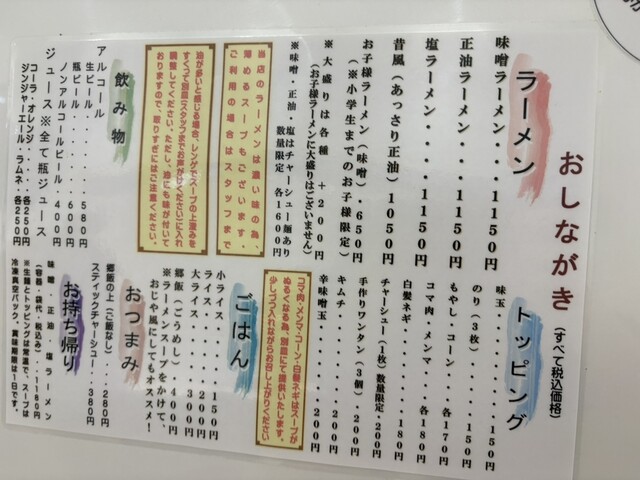 おしながき (すべて税込価格)
ラーメン
味噌ラーメン・・・1150円
正油ラーメン・・・1150円
塩ラーメン・・・・1150円
昔風(あっさり正油)1050円
お子様ラーメン(味噌)・650円
(※小学生までのお子様限定)
※大盛りは各種 +200円
(お子様ラーメンに大盛りはございません)
※味噌・正油・塩はチャーシュー麺あり
数量限定 各1600円
当店のラーメンは濃い味の為、
薄めるスープもございます。
ご利用の場合はスタッフまで
油が多いと感じる場合、レンゲでスープの上澄みを
すくって別皿(スタッフまでお声がけください)に入れ
調整してください。ただし、油にも味が付いて
おりますので、取りすぎにはご注意ください。
飲み物
アルコール
生ビール・・・・・580円
瓶ビール・・・・・600円
ノンアルコールビール・400円
ジュース※全て瓶ジュース
コーラ・オレンジ・・・・各250円
ジンジャーエール・ラムネ・各250円
トッピング
味玉・・・・・・・・・150円
のり(3枚)・・・・・・150円
もやし・コーン・・・各170円
コマ肉・メンマ・・・各180円
白髪ネギ・・・・・・・180円
チャーシュー(1枚)数量限定・200円
手作りワンタン(3個)・200円
キムチ・・・・・・・・200円
辛味噌玉・・・・・・・200円
コマ肉・メンマ・コーン・白髪ネギはスープが
ぬるくなる為、別皿にて提供いたします。
少しづつ入れながらお召し上がりください
ごはん
小ライス・・・・・150円
ライス・・・・・・200円
大ライス・・・・・300円
郷飯(ごうめし)・・400円
※ラーメンスープをかけて、
おじや風にしてもオススメ!
おつまみ
郷飯の上(ご飯なし)・・・280円
スティックチャーシュー・・380円
お持ち帰り
味噌・正油・塩ラーメン
(容器・袋代・税込み)・・1180円
※生麺とトッピングは常温で、スープは
冷凍真空パック、賞味期限は1日です。